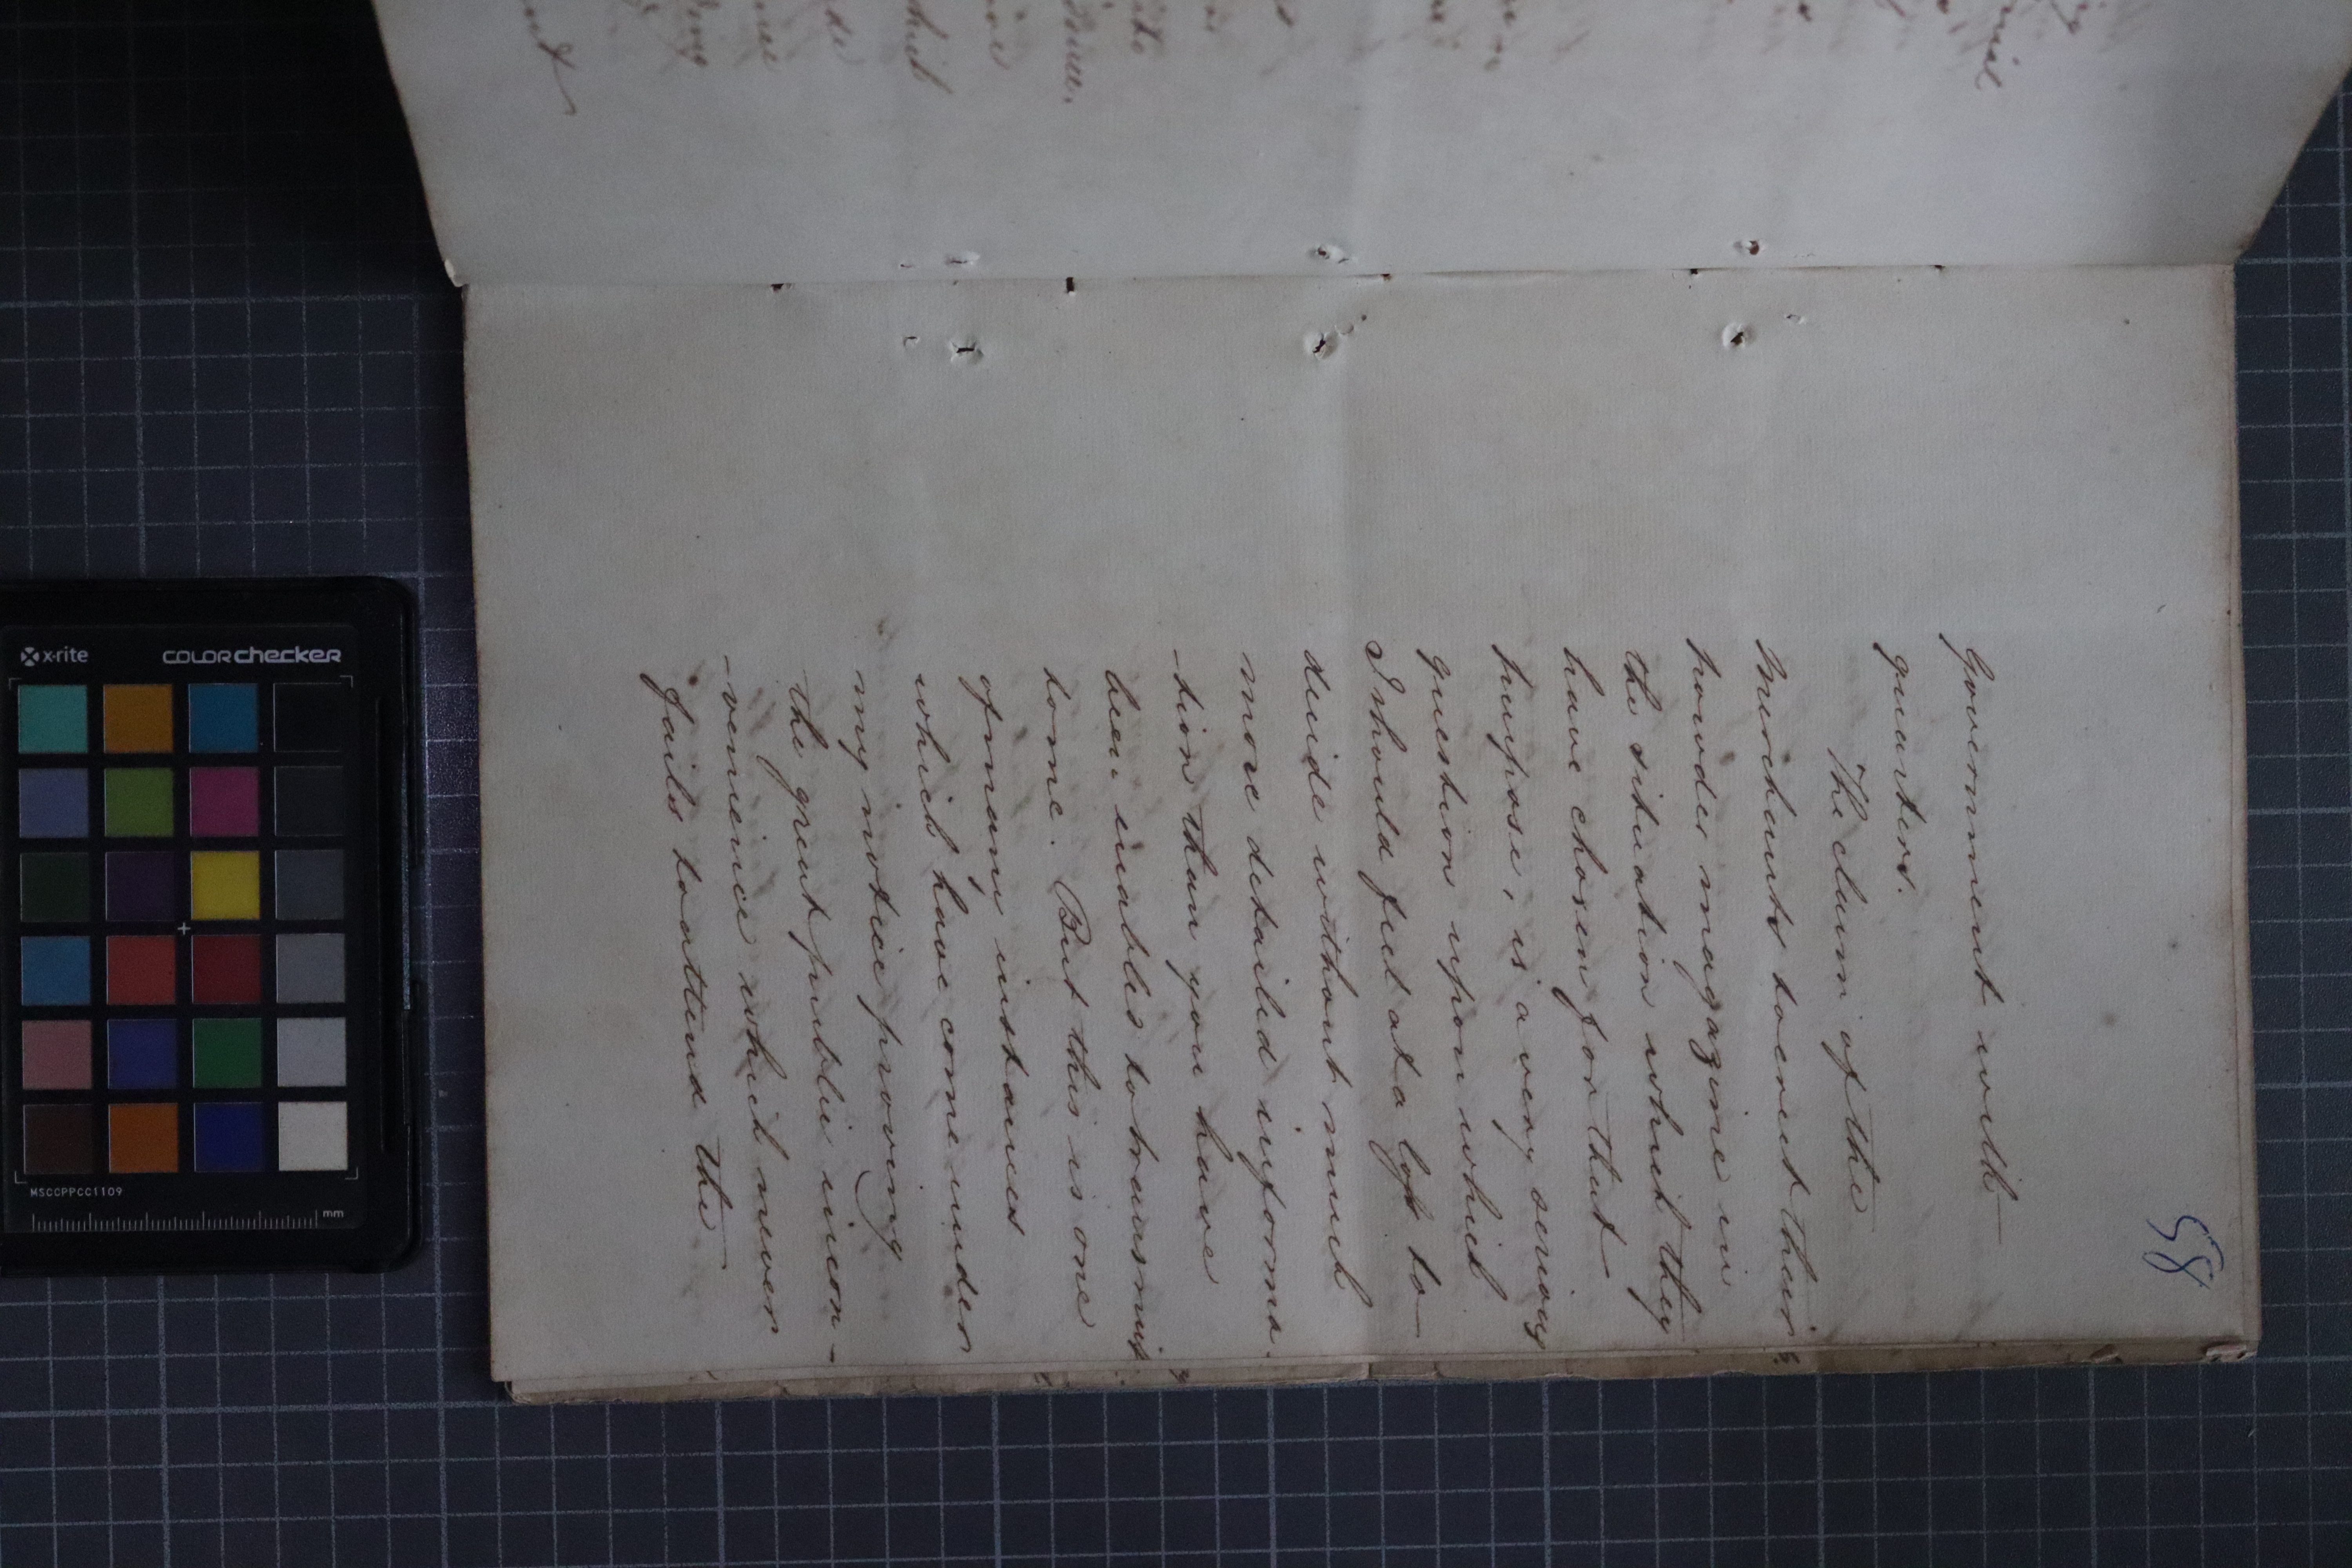 58
Government with
quarters.
The claim of the
Merchants to erect their
powder magazine in
the situation which they
have chosen for that
purpose, is a very serious
question upon which
I should feel at a loss to
decide without much
more detailed informa-
-tion than you have
been enabled to transmit
home. But this is one
of many instances
which have come under
my notice proving
the great public incon-
-venience which never
fails to attend the
x-rite
colorchecker
MSCCPPCC1109
mm